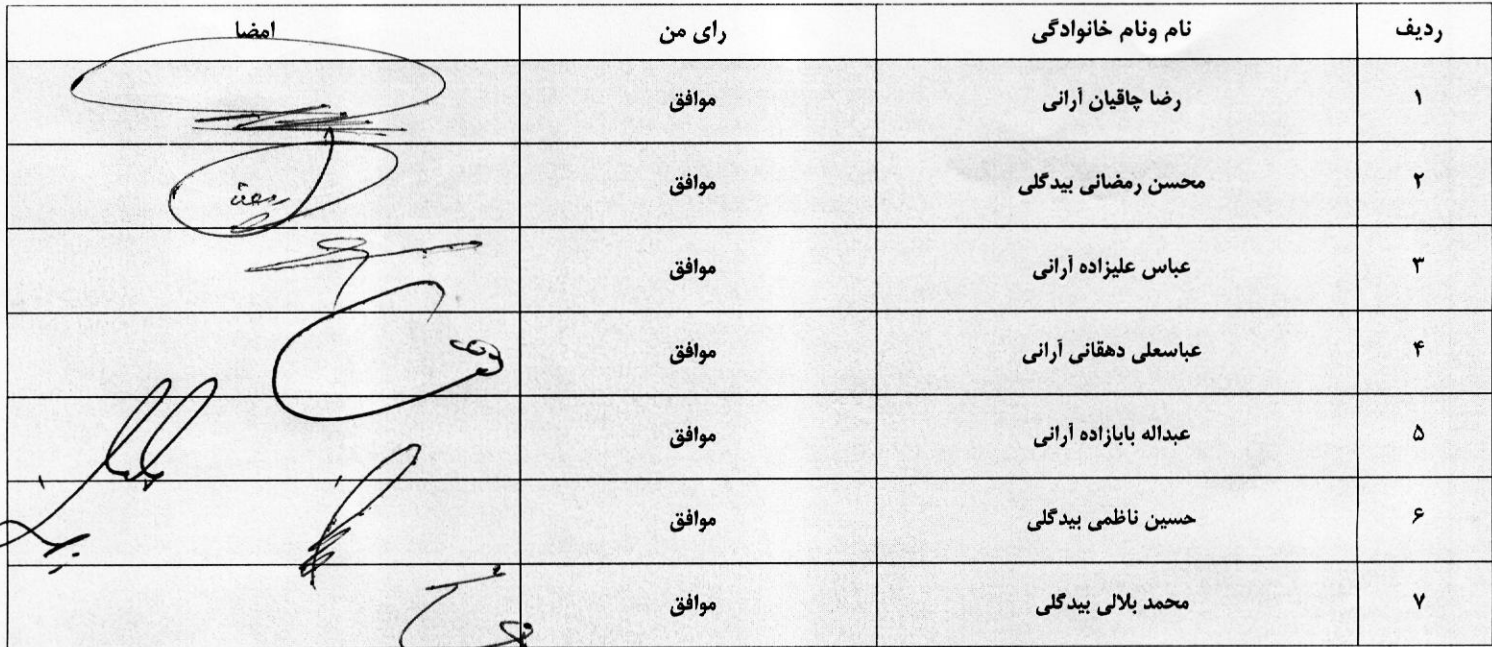 ردیف نام ونام خانوادگی رای من امضا
۱ رضا چاقیان آرانی موافق
۲ محسن رمضانی بیدگلی موافق
۳ عباس علیزاده آرانی موافق
۴ عباسعلی دهقانی آرانی موافق
۵ عبداله بابازاده آرانی موافق
۶ حسین ناظمی بیدگلی موافق
۷ محمد بلالی بیدگلی موافق